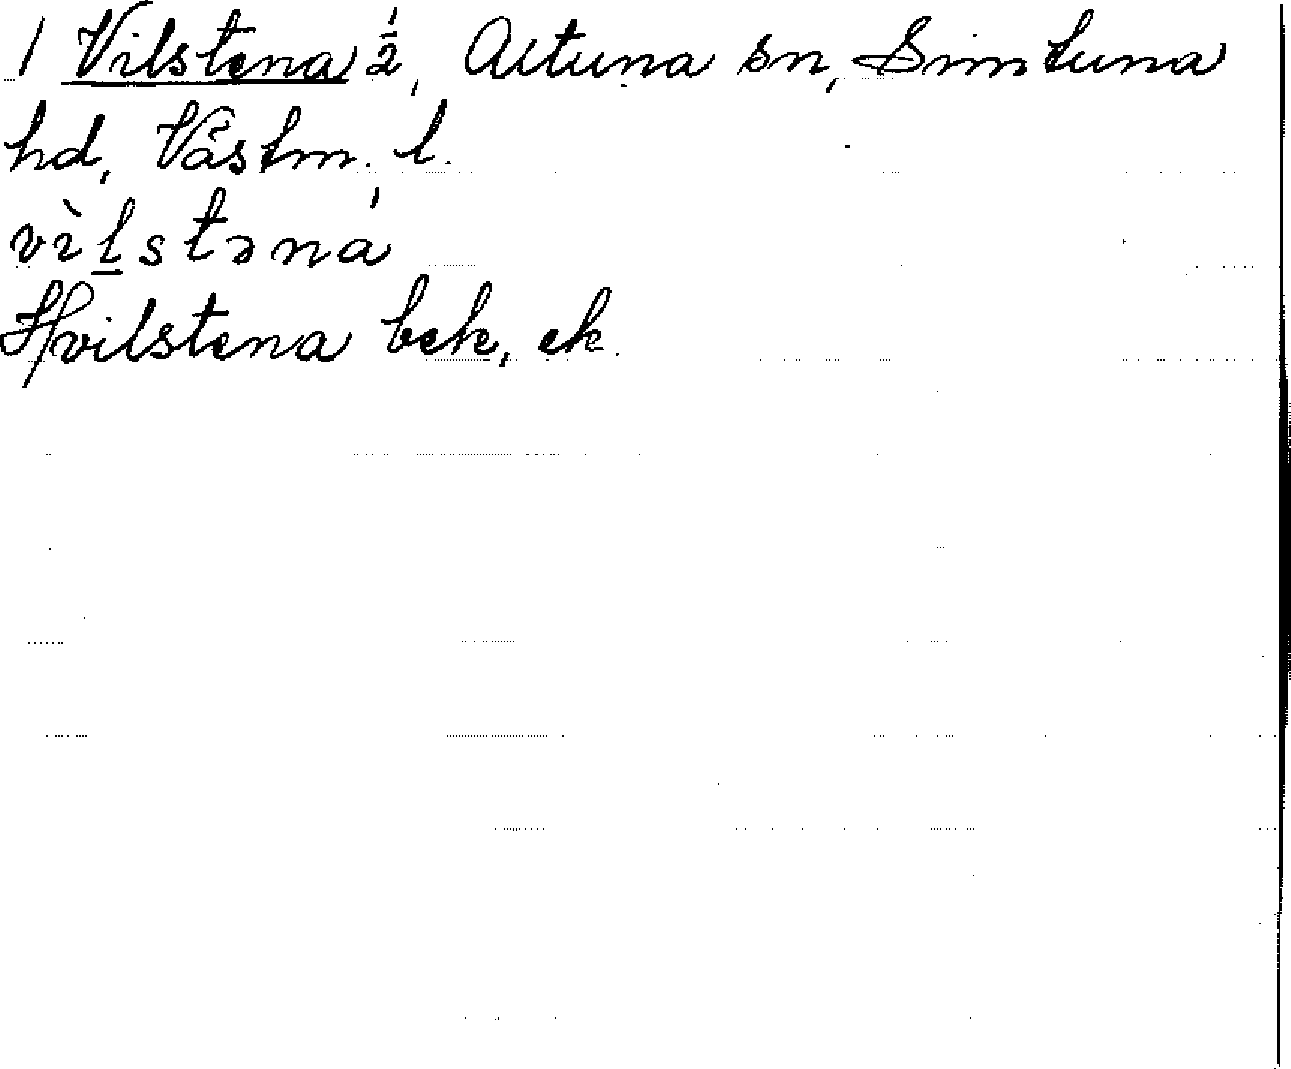 1 Vilstena ½, Altuna sn, Simtuna
hd, Västm. l.
vìḻstəná
Hvilstena bek, ek.